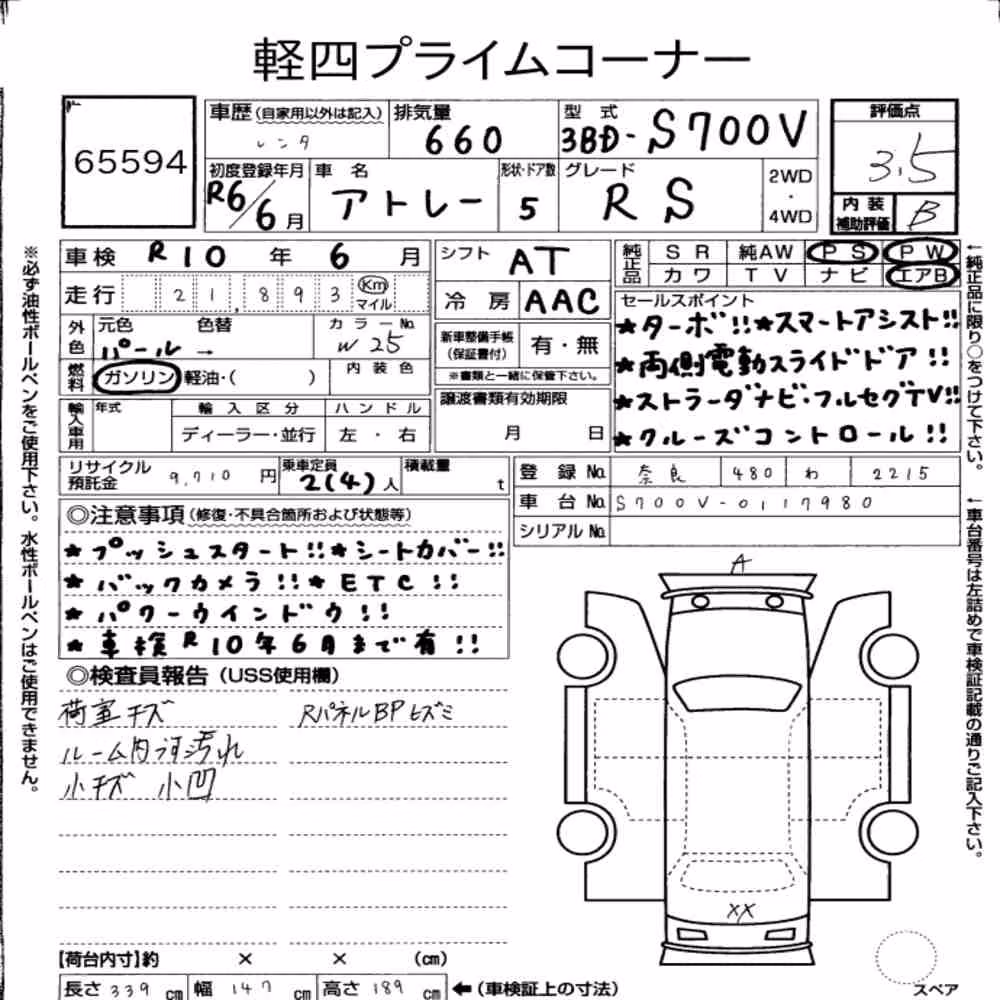 軽四プライムコーナー
65594
車歴 (自家用以外は記入)
レンタ
排気量
660
型式
3BD-S700V
評価点
3.5
初度登録年月
R6/6月
車名
アトレー
形状・ドア数
5
グレード
RS
2WD
・
4WD
内装
補助評価
B
車検 R10年 6月
シフト AT
純正品
SR 純AW PS PW
カワ TV ナビ エアB
走行 21,893 Km
マイル
冷房 AAC
セールスポイント
★ターボ!!★スマートアシスト!!
★両側電動スライドドア!!
★ストラーダナビ・フルセグTV!!
★クルーズコントロール!!
外色
元色 色替
パール →
カラーNo.
W25
新車整備手帳
(保証書付)
有・無
※書類と一緒に保管下さい。
燃料
ガソリン 軽油・( )
内装色
輸入車用
年式
輸入区分
ディーラー・並行
ハンドル
左・右
譲渡書類有効期限
月 日
リサイクル
預託金
9,710円
乗車定員
2(4)人
積載量
t
登録No. 奈良 480 わ 2215
車台No. S700V-0117980
シリアルNo.
◎注意事項 (修復・不具合箇所および状態等)
★プッシュスタート!!★シートカバー!!
★バックカメラ!!★ETC!!
★パワーウインドウ!!
★車検R10年6月まで有!!
◎検査員報告 (USS使用欄)
荷室キズ RパネルBPヒズミ
ルーム内 汚れ
小キズ 小凹
A
XX
スペア
【荷台内寸】約 × × (cm)
長さ339cm 幅147cm 高さ189cm ←(車検証上の寸法)
※必ず油性ボールペンをご使用下さい。水性ボールペンはご使用できません。
←純正品に限り○をつけて下さい。
←車台番号は左詰めで車検証記載の通りご記入下さい。